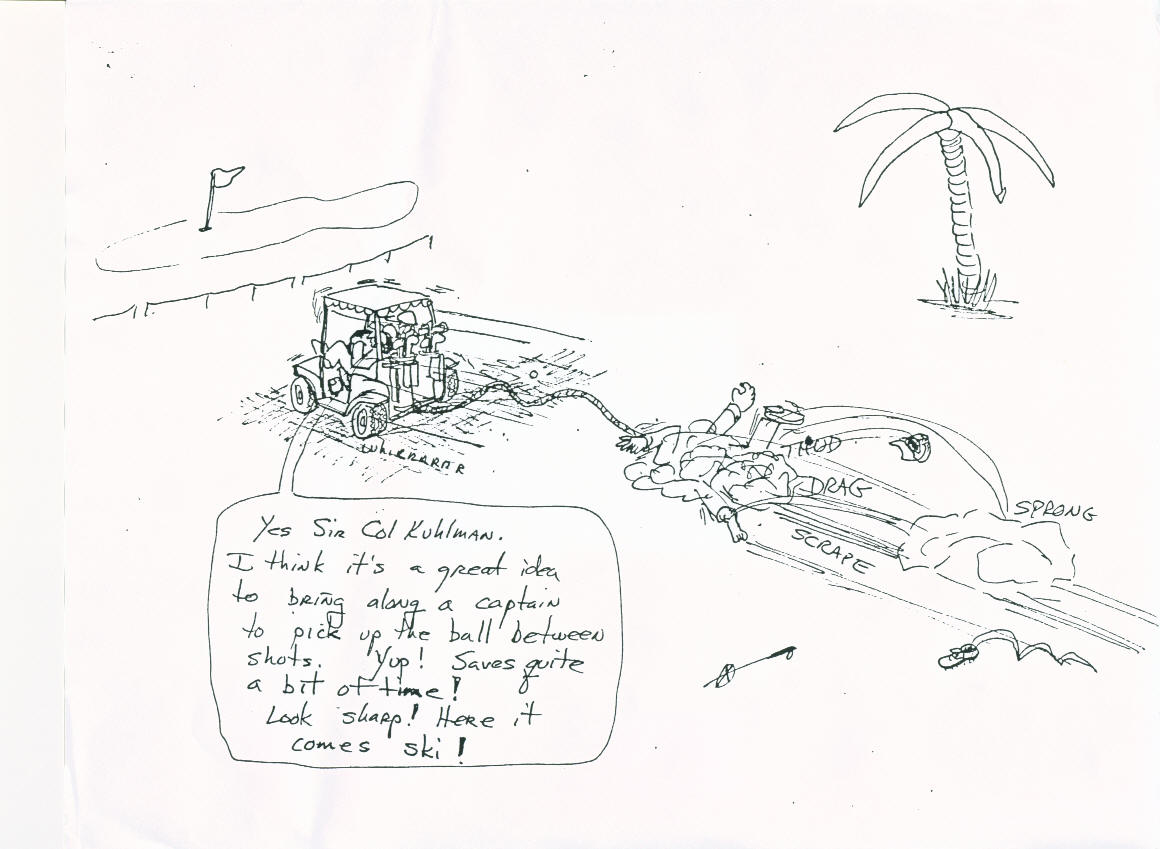 THUD
DRAG
SPRONG
SCRAPE
Yes Sir Col Kuhlman.
I think it's a great idea
to bring along a captain
to pick up the ball between
shots. Yup! Saves quite
a bit of time!
Look sharp! Here it
comes ski!